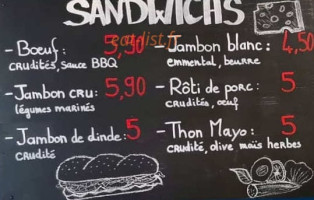 SANDWICHS
eat-list.fr
- Boeuf : 5,90
crudités, sauce BBQ
- Jambon cru : 5,90
légumes marinés
- Jambon de dinde : 5
crudité
- Jambon blanc : 4,50
emmental, beurre
- Rôti de porc : 5
crudités, oeuf
- Thon Mayo : 5
crudité, olive maïs herbes